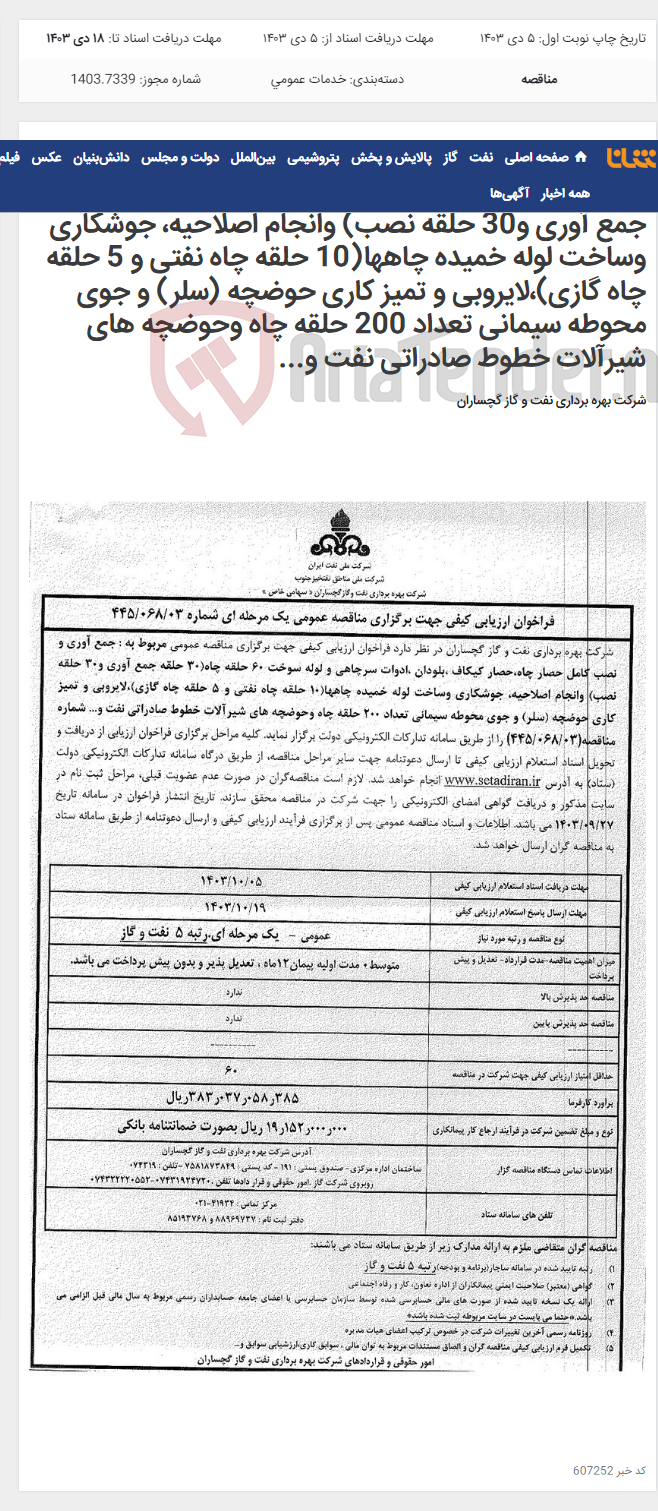 تاریخ چاپ نوبت اول: ۵ دی ۱۴۰۳ مهلت دریافت اسناد از: ۵ دی ۱۴۰۳ مهلت دریافت اسناد تا: ۱۸ دی ۱۴۰۳
مناقصه دسته‌بندی: خدمات عمومي شماره مجوز: 1403.7339
شانا صفحه اصلی نفت گاز پالایش و پخش پتروشیمی بین‌الملل دولت و مجلس دانش‌بنیان عکس فیلم
همه اخبار آگهی‌ها
جمع آوری و30 حلقه نصب) وانجام اصلاحیه، جوشکاری
وساخت لوله خمیده چاهها(10 حلقه چاه نفتی و 5 حلقه
چاه گازی)،لایروبی و تمیز کاری حوضچه (سلر) و جوی
محوطه سیمانی تعداد 200 حلقه چاه وحوضچه های
شیرآلات خطوط صادراتی نفت و...
AriaTender.n
شرکت بهره برداری نفت و گاز گچساران
شرکت ملی نفت ایران
شرکت ملی مناطق نفتخیز جنوب
شرکت بهره برداری نفت وگازگچساران « سهامی خاص »
فراخوان ارزیابی کیفی جهت برگزاری مناقصه عمومی یک مرحله ای شماره ۴۴۵/۰۶۸/۰۳
شرکت بهره برداری نفت و گاز گچساران در نظر دارد فراخوان ارزیابی کیفی جهت برگزاری مناقصه عمومی مربوط به : جمع آوری و
نصب کامل حصار چاه،حصار کیکاف ،بلودان ،ادوات سرچاهی و لوله سوخت ۶۰ حلقه چاه(۳۰ حلقه جمع آوری و۳۰ حلقه
نصب) وانجام اصلاحیه، جوشکاری وساخت لوله خمیده چاهها(۱۰ حلقه چاه نفتی و ۵ حلقه چاه گازی)،لایروبی و تمیز
کاری حوضچه (سلر) و جوی محوطه سیمانی تعداد ۲۰۰ حلقه چاه وحوضچه های شیرآلات خطوط صادراتی نفت و... شماره
مناقصه(۴۴۵/۰۶۸/۰۳) را از طریق سامانه تدارکات الکترونیکی دولت برگزار نماید. کلیه مراحل برگزاری فراخوان ارزیابی از دریافت و
تحویل اسناد استعلام ارزیابی کیفی تا ارسال دعوتنامه جهت سایر مراحل مناقصه، از طریق درگاه سامانه تدارکات الکترونیکی دولت
(ستاد) به آدرس www.setadiran.ir انجام خواهد شد. لازم است مناقصه‌گران در صورت عدم عضویت قبلی، مراحل ثبت نام در
سایت مذکور و دریافت گواهی امضای الکترونیکی را جهت شرکت در مناقصه محقق سازند. تاریخ انتشار فراخوان در سامانه تاریخ
۱۴۰۳/۰۹/۲۷ می باشد. اطلاعات و اسناد مناقصه عمومی پس از برگزاری فرآیند ارزیابی کیفی و ارسال دعوتنامه از طریق سامانه ستاد
به مناقصه گران ارسال خواهد شد.
مهلت دریافت اسناد استعلام ارزیابی کیفی ۱۴۰۳/۱۰/۰۵
مهلت ارسال پاسخ استعلام ارزیابی کیفی ۱۴۰۳/۱۰/۱۹
نوع مناقصه و رتبه مورد نیاز عمومی - یک مرحله ای،رتبه ۵ نفت و گاز
میزان اهمیت مناقصه-مدت قرارداد- تعدیل و پیش پرداخت متوسط، مدت اولیه پیمان۱۲ماه ، تعدیل پذیر و بدون پیش پرداخت می باشد.
مناقصه حد پذیرش بالا ندارد
مناقصه حد پذیرش پایین ندارد
---------- ----------
حداقل امتیاز ارزیابی کیفی جهت شرکت در مناقصه ۶۰
برآورد کارفرما ۳۸۳٫۰۳۷٫۰۵۸٫۳۸۵ریال
نوع و مبلغ تضمین شرکت در فرآیند ارجاع کار پیمانکاری ۱۹٫۱۵۲٫۰۰۰٫۰۰۰ ریال بصورت ضمانتنامه بانکی
اطلاعات تماس دستگاه مناقصه گزار آدرس شرکت بهره برداری نفت و گاز گچساران
ساختمان اداره مرکزی - صندوق پستی : ۱۹۱ - کد پستی : ۷۵۸۱۸۷۳۸۴۹ -تلفن : ۰۷۴۳۱۹
روبروی شرکت گاز .امور حقوقی و قرار دادها تلفن ۰۷۴۳۱۹۲۴۷۲۰-۰۷۴۳۲۲۲۰۵۵۲
تلفن های سامانه ستاد مرکز تماس : ۴۱۹۳۴-۰۲۱
دفتر ثبت نام : ۸۸۹۶۹۷۳۷ و ۸۵۱۹۳۷۶۸
مناقصه گران متقاضی ملزم به ارائه مدارک زیر از طریق سامانه ستاد می باشند:
۱) رتبه تایید شده در سامانه ساجار(برنامه و بودجه)رتبه ۵ نفت و گاز
۲) گواهی (معتبر) صلاحیت ایمنی پیمانکاران از اداره تعاون، کار و رفاه اجتماعی
۳) ارائه یک نسخه تایید شده از صورت های مالی حسابرسی شده توسط سازمان حسابرسی یا اعضای جامعه حسابداران رسمی مربوط به سال مالی قبل الزامی می
باشد.«حتما می بایست در سایت مربوطه ثبت شده باشد»
۴) روزنامه رسمی آخرین تغییرات شرکت در خصوص ترکیب اعضای هیات مدیره
۵) تکمیل فرم ارزیابی کیفی مناقصه گران و الصاق مستندات مربوط به توان مالی ، سوابق کاری،ارزشیابی سوابق و...
امور حقوقی و قراردادهای شرکت بهره برداری نفت و گاز گچساران
کد خبر 607252